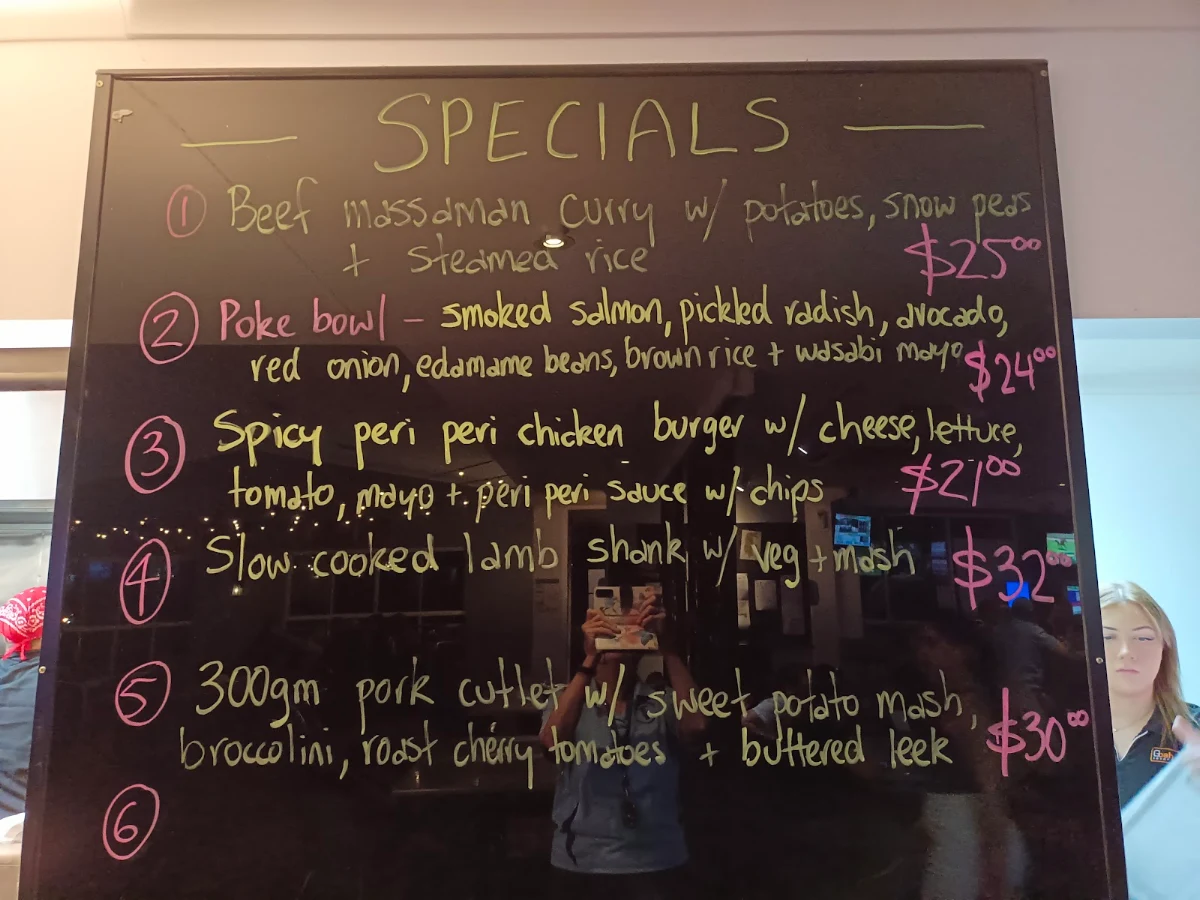 SPECIALS
1 Beef massaman curry w/ potatoes, snow peas
+ steamed rice $25.00
2 Poke bowl - smoked salmon, pickled radish, avocado,
red onion, edamame beans, brown rice + wasabi mayo $24.00
3 Spicy peri peri chicken burger w/ cheese, lettuce,
tomato, mayo + peri peri sauce w/ chips $21.00
4 Slow cooked lamb shank w/ veg + mash $32.00
5 300gm pork cutlet w/ sweet potato mash,
broccolini, roast cherry tomatoes + buttered leek $30.00
6